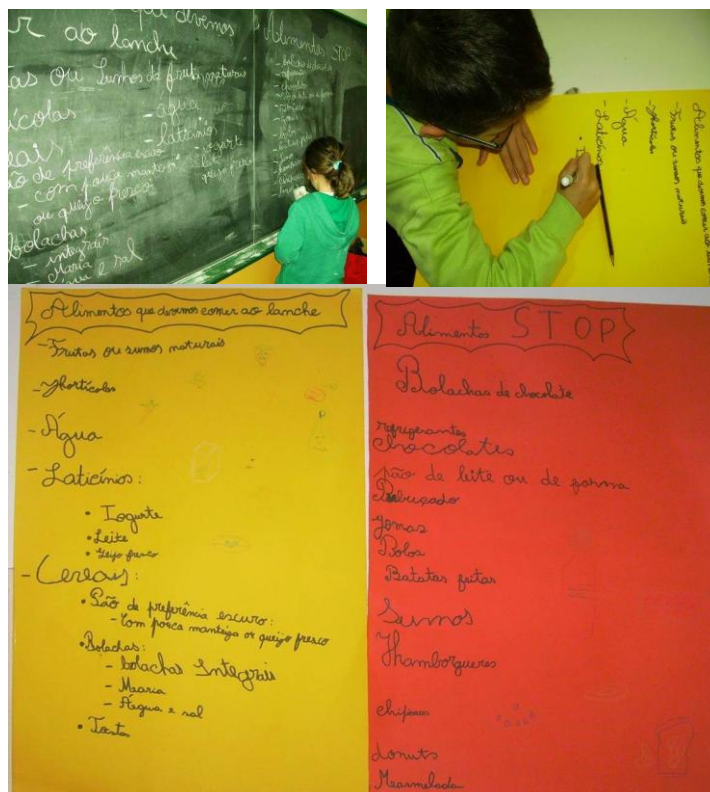 que devemos
ao lanche
ou Sumos de fruta naturais
ícolas
- água
- laticínios
- iogurte
- leite
queijo fresco
eais
ão de preferência escuro
- com pouca manteiga
ou queijo fresco
bolachas
- integrais
- Maria
- água e sal
Alimentos STOP
Alimentos que devemos comer ao
- Frutas ou sumos naturais
- Hortícolas
- Água
- Laticínios
Alimentos que devemos comer ao lanche
- Frutas ou sumos naturais
- Hortícolas
- Água
- Laticínios:
• Iogurte
• Leite
• Queijo fresco
- Cereais:
• Pão de preferência escuro:
- Com pouca manteiga ou queijo fresco
• Bolachas:
- bolachas Integrais
- Maaria
- Áegua e sal
• Tosta
Alimentos STOP
Bolachas de chocolate
refrigerantes
chocolates
pão de leite ou de forma
Rebuçado
gomas
Bolos
Batatas fritas
Sumos
Hamborgueres
donuts
Mearmelada